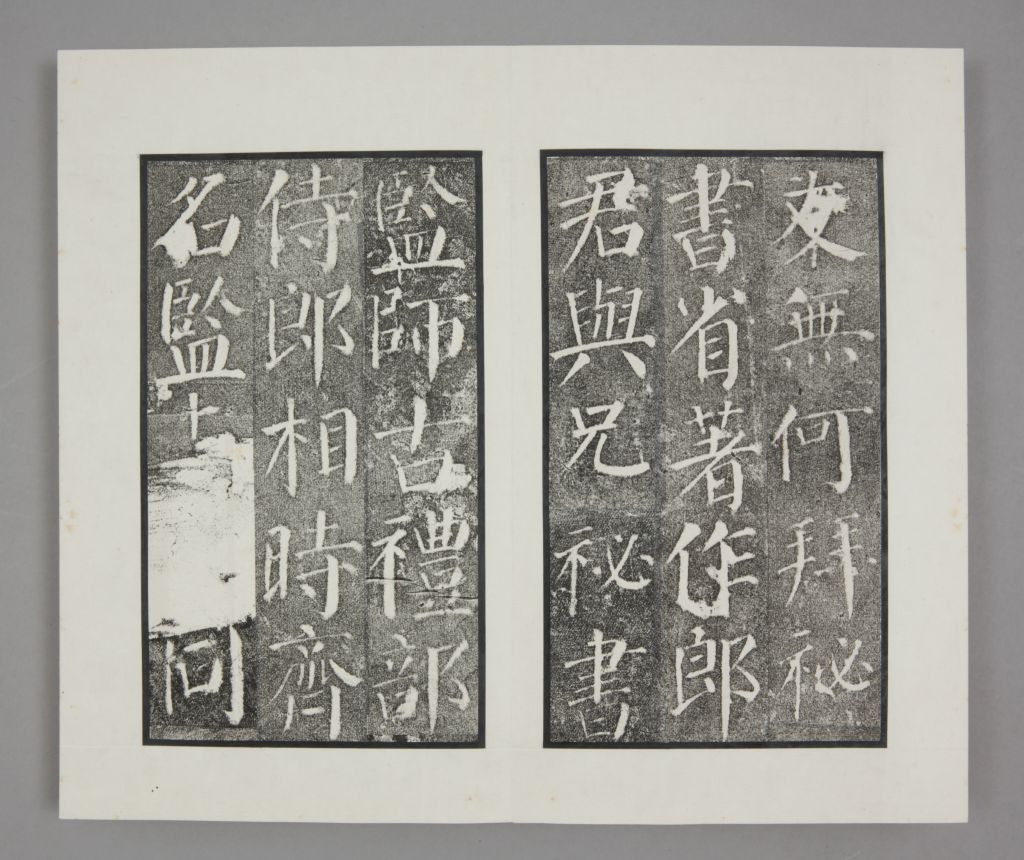 友無何拜祕
書省著作郎
君與兄祕書
監師古禮部
侍郎相時齊
名監 同